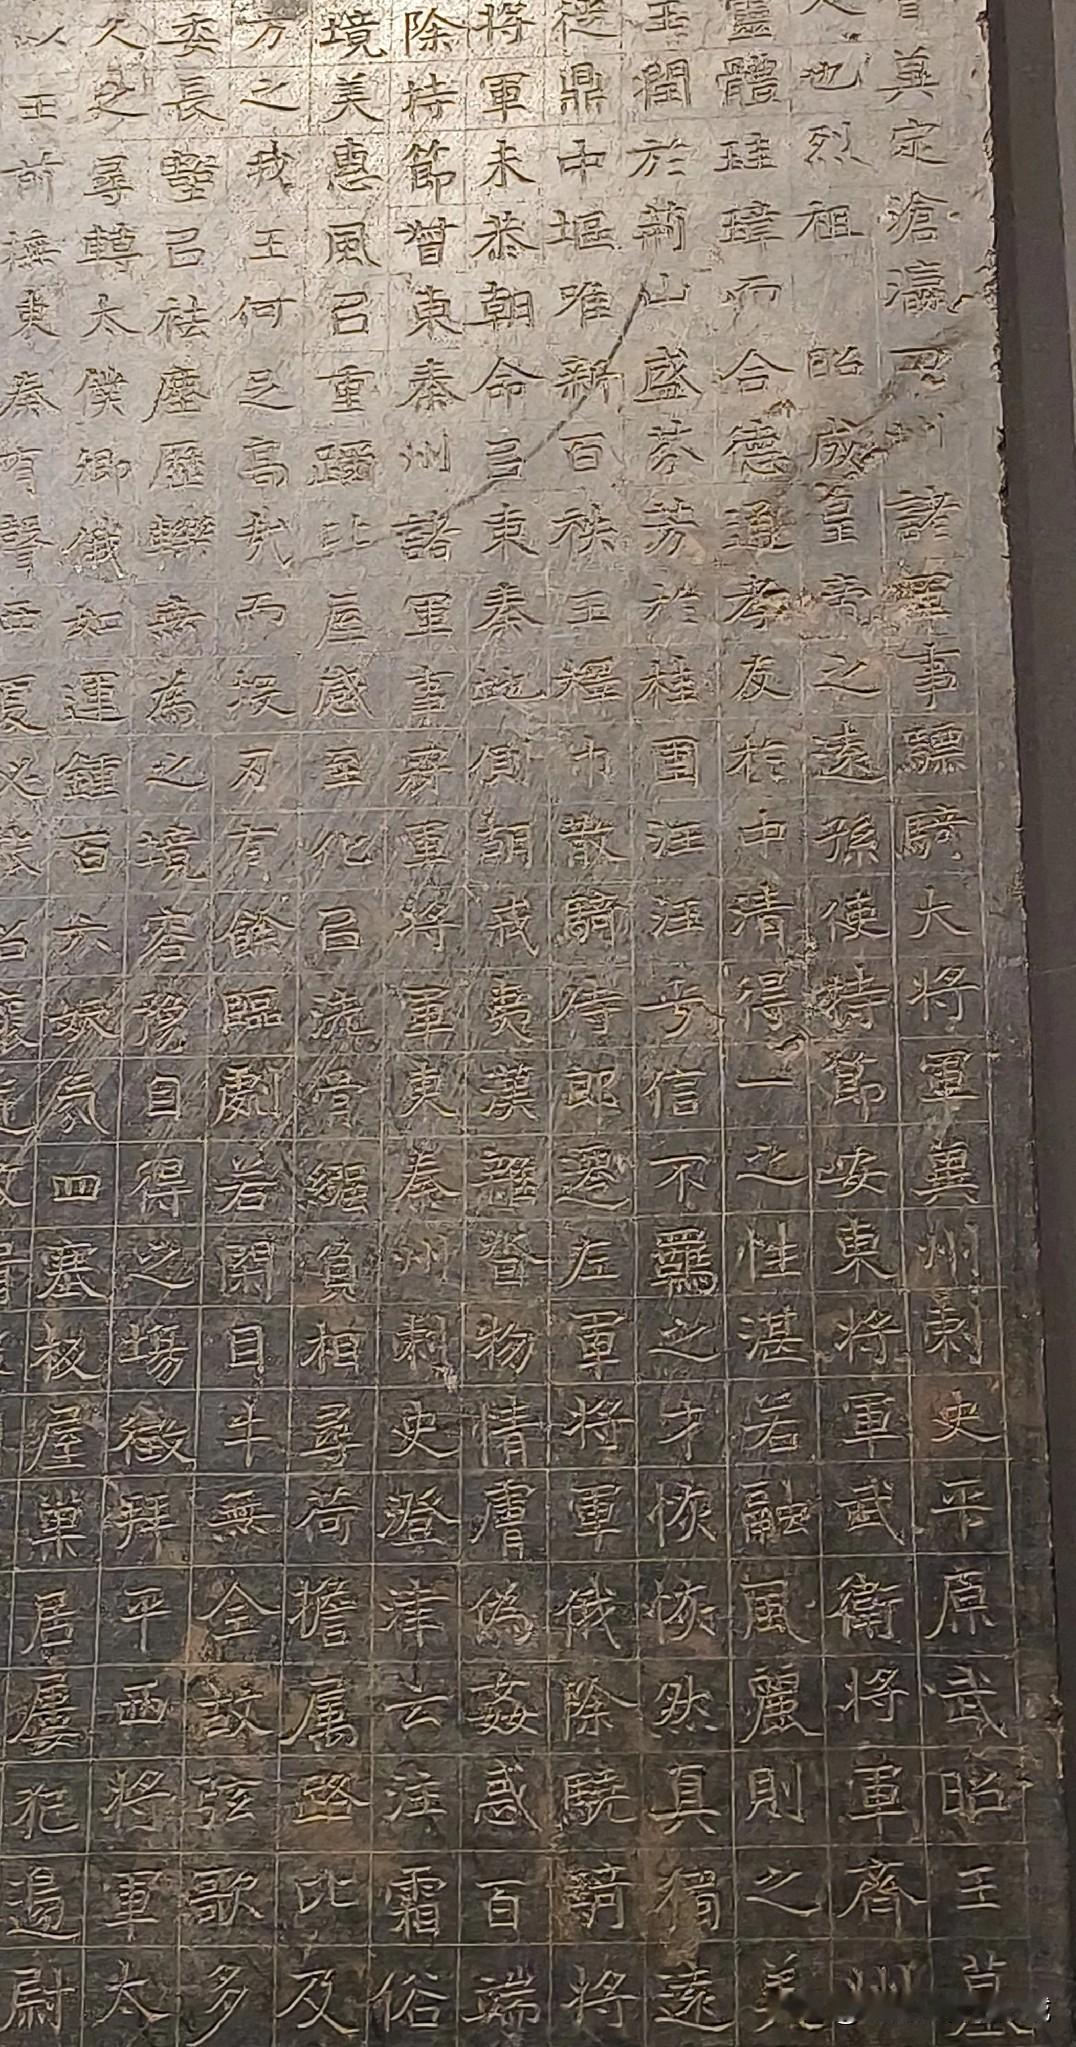 冀定滄瀛四州諸軍事驃騎大將軍冀州刺史平原武昭王墓
也烈祖昭成皇帝之遠孫使持節安東將軍武衛將軍齊州
靈體珪璋而合德通孝友於中清得一之性湛若融風麗則之美
玉潤於荊山盛芬芳於桂園汪汪焉信不羈之才恢恢然具獨遠
從鼎中堰唯新百秩王釋巾散騎侍郎遷左軍將軍俄除驍騎將
將軍未恭朝命以東秦此間胡戎夷漢雜沓物情膚偽姦惑百端
除持節督東秦州諸軍事寧軍將軍東秦州刺史澄津去注霜俗
境美惠風以重躡比屋感至化以流骨繈負相尋荷擔属路比及
方之我王何乏高哉而況刃有餘臨劇若閑目牛無全故弦歌多
委長壂以祛塵歷轢無為之境容豫自得之場徵拜平西將軍太
久之尋轉太僕卿儀如運鍾百六妖氛四塞板屋巢居屢犯邊尉
王前撫東秦有聲西夏必